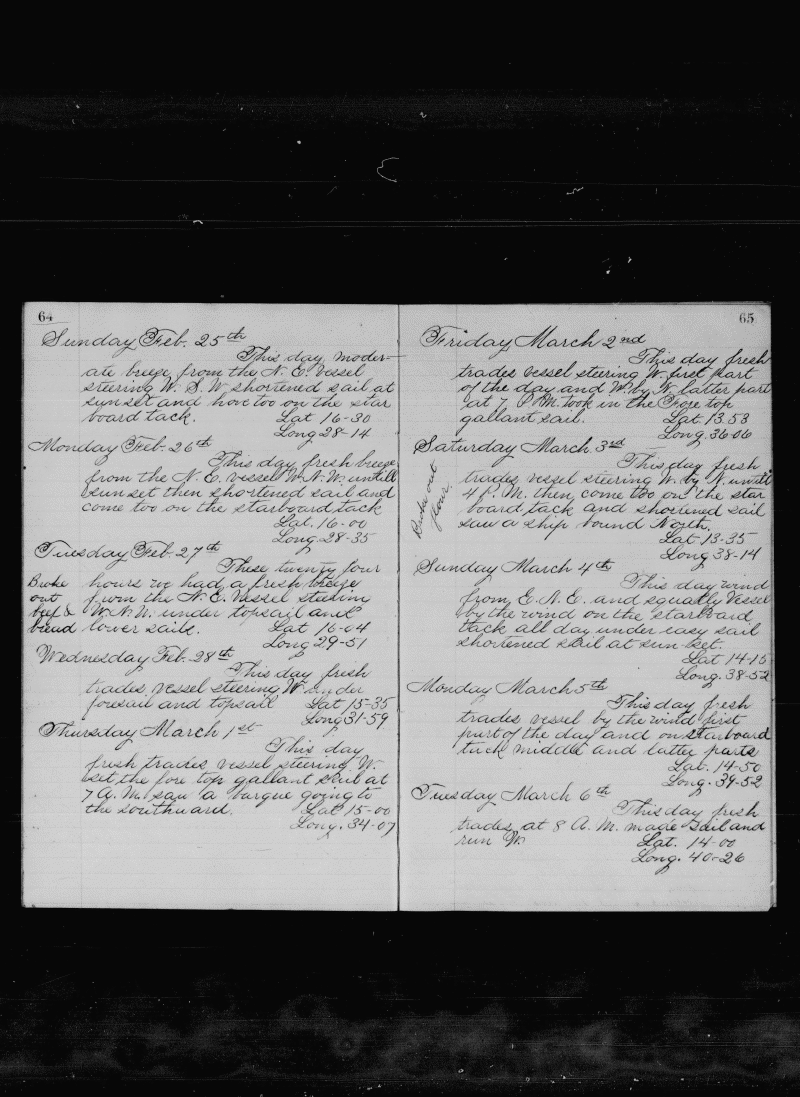 64
Sunday Feb. 25th
This day moder-
ate breeze from the N. E. vessel
steering W. S. W. shortened sail at
sunset and hove too on the star
board tack. Lat 16-30
Long 28-14
Monday Feb. 26th
This day fresh breeze
from the N. E. vessel W. N. W. untill
sunset then shortened sail and
come too on the starboard tack
Lat. 16-00
Long. 28-35
Tuesday Feb. 27th
These twenty four
Broke hours we had a fresh breeze
out from the N. E. Vessel
beef & W. N. W. under topsail and
bread lower sails. Lat 16-04
Long 29-51
Wednesday Feb. 28th
This day fresh
trades vessel steering W under
foresail and topsail Lat 15-35
Long 31-59
Thursday March 1st
This day
fresh trades vessel steering W.
set the fore top gallant sail at
7 A. M. saw a barque going to
the southward. Lat 15-00
Long. 34-07
65
Friday March 2nd
This day fresh
trades vessel steering W. first part
of the day and W. by N. latter part
at 7 P. M. took in the Fore top
gallant sail. Lat. 13.53
Long. 36-06
Saturday March 3rd
This day fresh
trades vessel steering W. by N. untill
4 P. M. then come too on the star
board tack and shortened sail
saw a ship bound North.
Lat 13-35
Long 38-14
Broke out
flour.
Sunday March 4th
This day wind
from E. N. E. and squally Vessel
by the wind on the starboard
tack all day under easy sail
shortened sail at sun-set.
Lat 14-15
Long. 38-52
Monday March 5th
This day fresh
trades vessel by the wind first
part of the day and on starboard
tack middle and latter parts
Lat. 14-50
Long. 39-52
Tuesday March 6th
This day fresh
trades, at 8 A. M. made Sail and
run W. Lat. 14-00
Long. 40-26